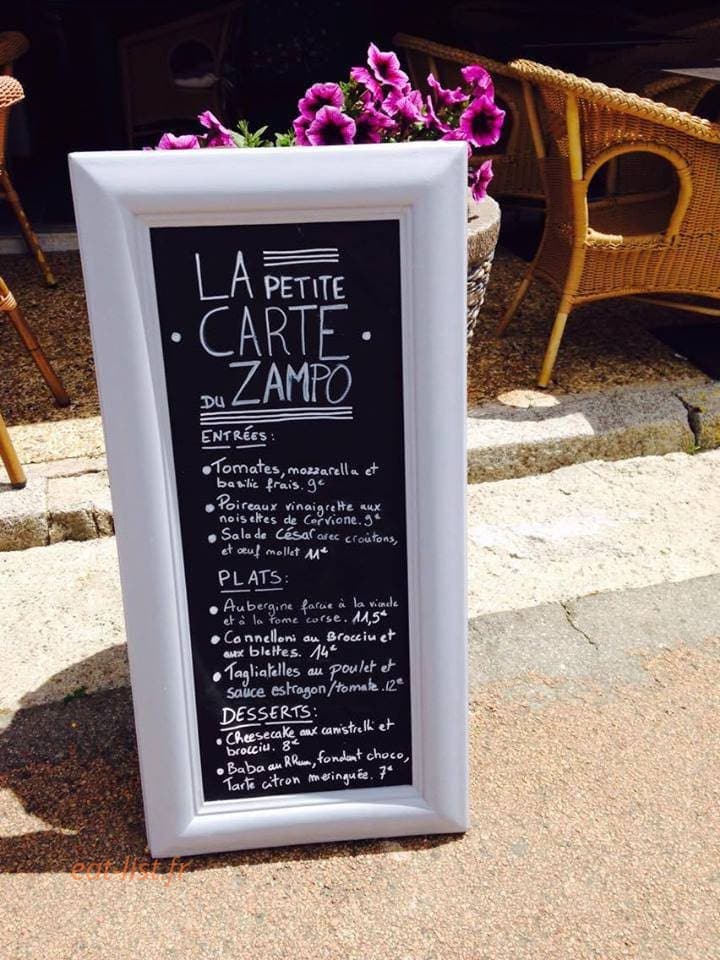 LA PETITE
CARTE
DU ZAMPO
ENTRÉES:
• Tomates, mozzarella et
basilic frais. 9€
• Poireaux vinaigrette aux
noisettes de Cervione. 9€
• Salade César avec croûtons,
et œuf mollet 11€
PLATS:
• Aubergine farcie à la viande
et à la tome corse. 11,5€
• Cannelloni au Brocciu et
aux blettes. 14€
• Tagliatelles au poulet et
sauce estragon/tomate. 12€
DESSERTS:
• Cheesecake aux canistrelli et
brocciu. 8€
• Baba au RRum, fondant choco,
Tarte citron meringuée. 7€
eat-list.fr